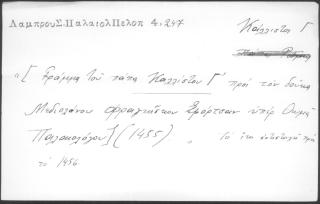 ΛαμπρουΣ.ΠαλαιολΠελοπ 4,247
Καλλίστου Γ
«[Γράμμα τοῦ πάπα Καλλίστου Γ' πρὸς τὸν δοῦκα
Μεδιολάνου Φραγκῖσκον Σφόρτσαν ὑπὲρ Θωμᾶ
Παλαιολόγου] (1455)
τὸ 1456